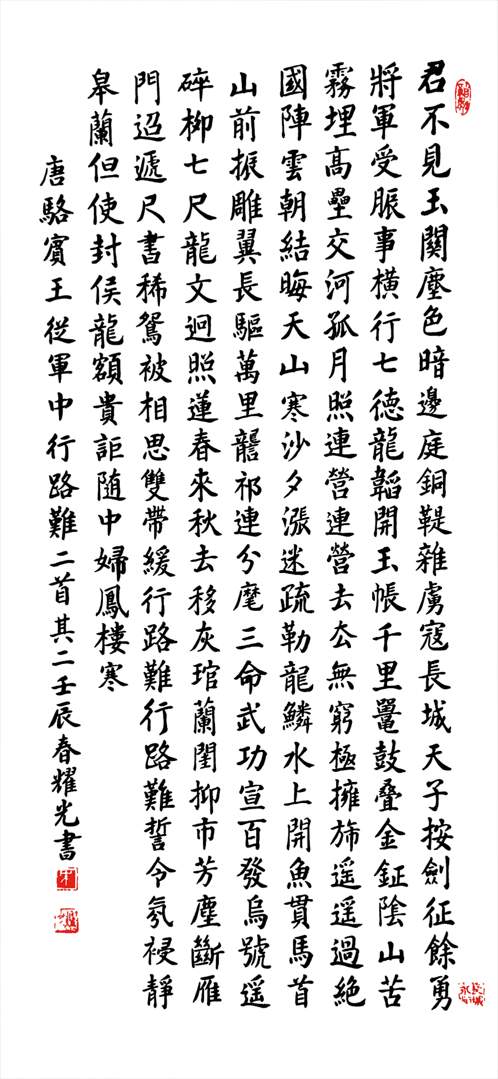 君不見玉關塵色暗邊庭銅鞮雜虜寇長城天子按劍征餘勇
將軍受脤事橫行七德龍韜開玉帳千里鼉鼓疊金鉦陰山苦
霧埋高壘交河孤月照連營連營去厺無窮極擁旆遥遥過絕
國陣雲朝結晦天山寒沙夕漲迷疏勒龍鱗水上開魚貫馬首
山前振雕翼長驅萬里讋祁連分麾三命武功宣百發烏號遥
碎柳七尺龍文迥照蓮春來秋去移灰琯蘭閨柳市芳塵斷雁
門迢遞尺書稀鴛被相思雙帶緩行路難行路難誓令氛祲靜
皋蘭但使封侯龍額貴詎随中婦鳳樓寒
唐駱賓王從軍中行路難二首其二壬辰春耀光書